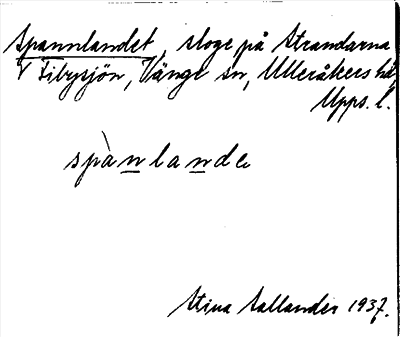 Spannlandet, sloge på Strandarna
V Fibysjön, Vänge sn, Ulleråkers hd,
Upps. l.
spànlande
Stina Sallander 1937.